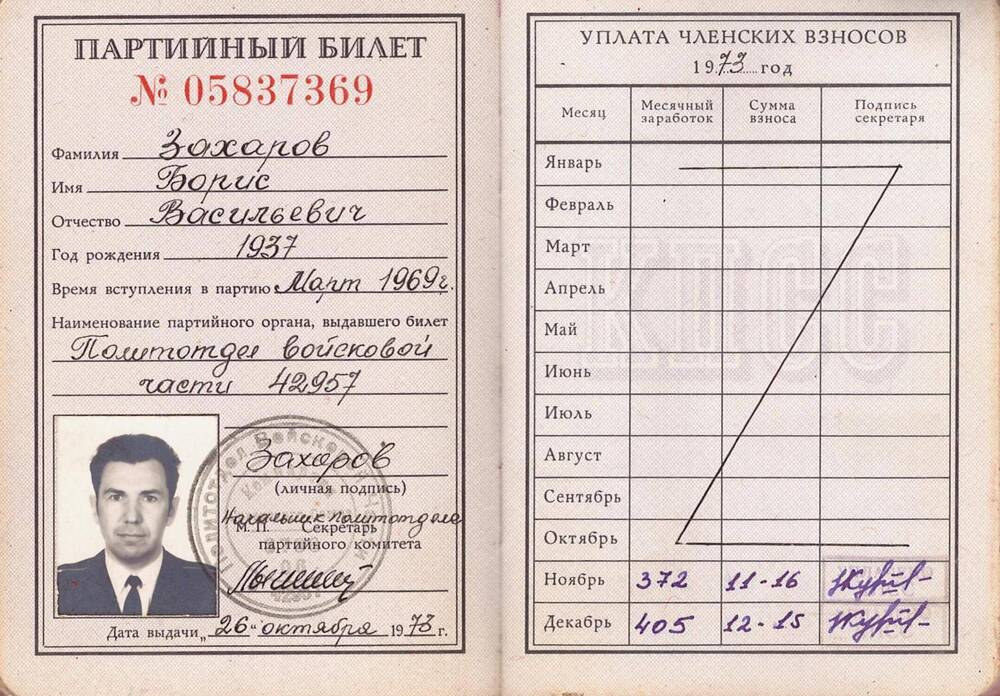 ПАРТИЙНЫЙ БИЛЕТ
№ 05837369
Фамилия Захаров
Имя Борис
Отчество Васильевич
Год рождения 1937
Время вступления в партию Март 1969г.
Наименование партийного органа, выдавшего билет
Политотдел войсковой
части 42957
Захаров
(личная подпись)
Начальник политотдела
М.П. Секретарь
партийного комитета
Дата выдачи „26“ октября 1973 г.
УПЛАТА ЧЛЕНСКИХ ВЗНОСОВ
1973 год
Месяц Месячный заработок Сумма взноса Подпись секретаря
Январь
Февраль
Март
Апрель
Май
Июнь
Июль
Август
Сентябрь
Октябрь
Ноябрь 372 11-16
Декабрь 405 12-15
КПСС